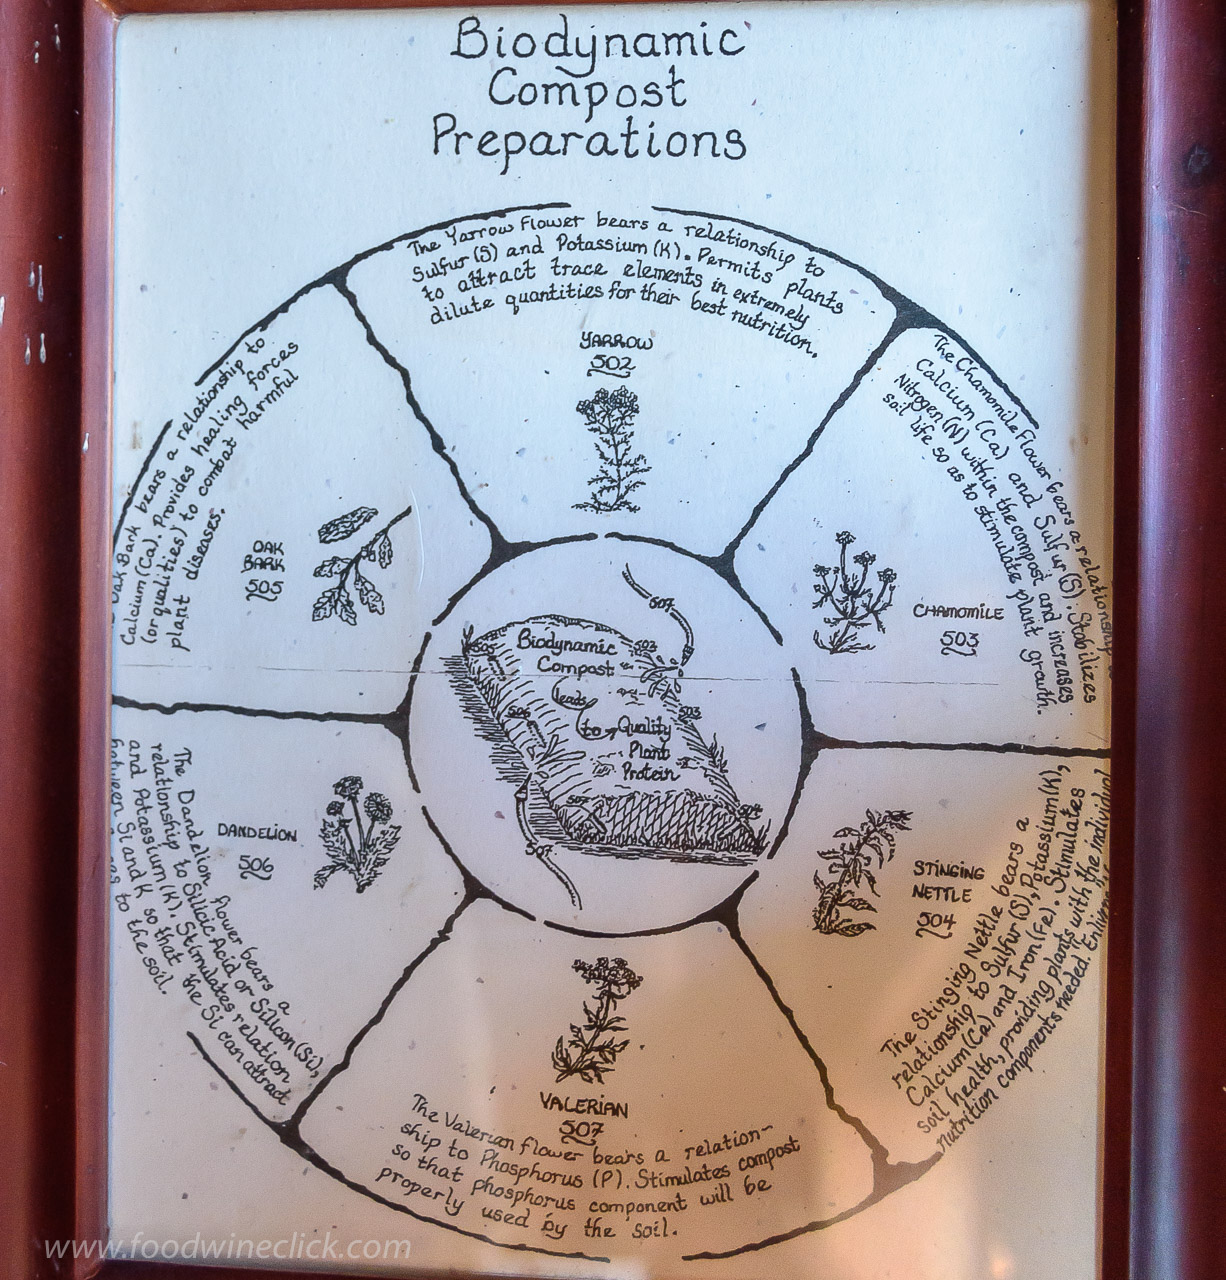 Biodynamic
Compost
Preparations
The Yarrow Flower bears a relationship to
Sulfur (S) and Potassium (K). Permits plants
to attract trace elements in extremely
dilute quantities for their best nutrition.
YARROW
502
The Chamomile Flower bears a relationship
Calcium (Ca) and Sulfur (S). Stabilizes
Nitrogen (N) within the compost and increases
soil life so as to stimulate plant growth.
CHAMOMILE
503
STINGING
NETTLE
504
The Stinging Nettle bears a
relationship to Sulfur (S), Potassium (K),
Calcium (Ca) and Iron (Fe). Stimulates
soil health, providing plants with the individual
nutrition components needed.
VALERIAN
507
The Valerian flower bears a relation-
ship to Phosphorus (P). Stimulates compost
so that phosphorus component will be
properly used by the soil.
DANDELION
506
The Dandelion flower bears a
relationship to Silicic Acid or Silicon (Si),
and Potassium (K). Stimulates relation
between Si and K so that the Si can attract
to the soil.
Oak Bark bears a relationship to
Calcium (Ca). Provides healing forces
(or qualities) to combat harmful
plant diseases.
OAK
BARK
505
507
Biodynamic
Compost
leads
to
Quality
Plant
Protein
503
506
507
www.foodwineclick.com